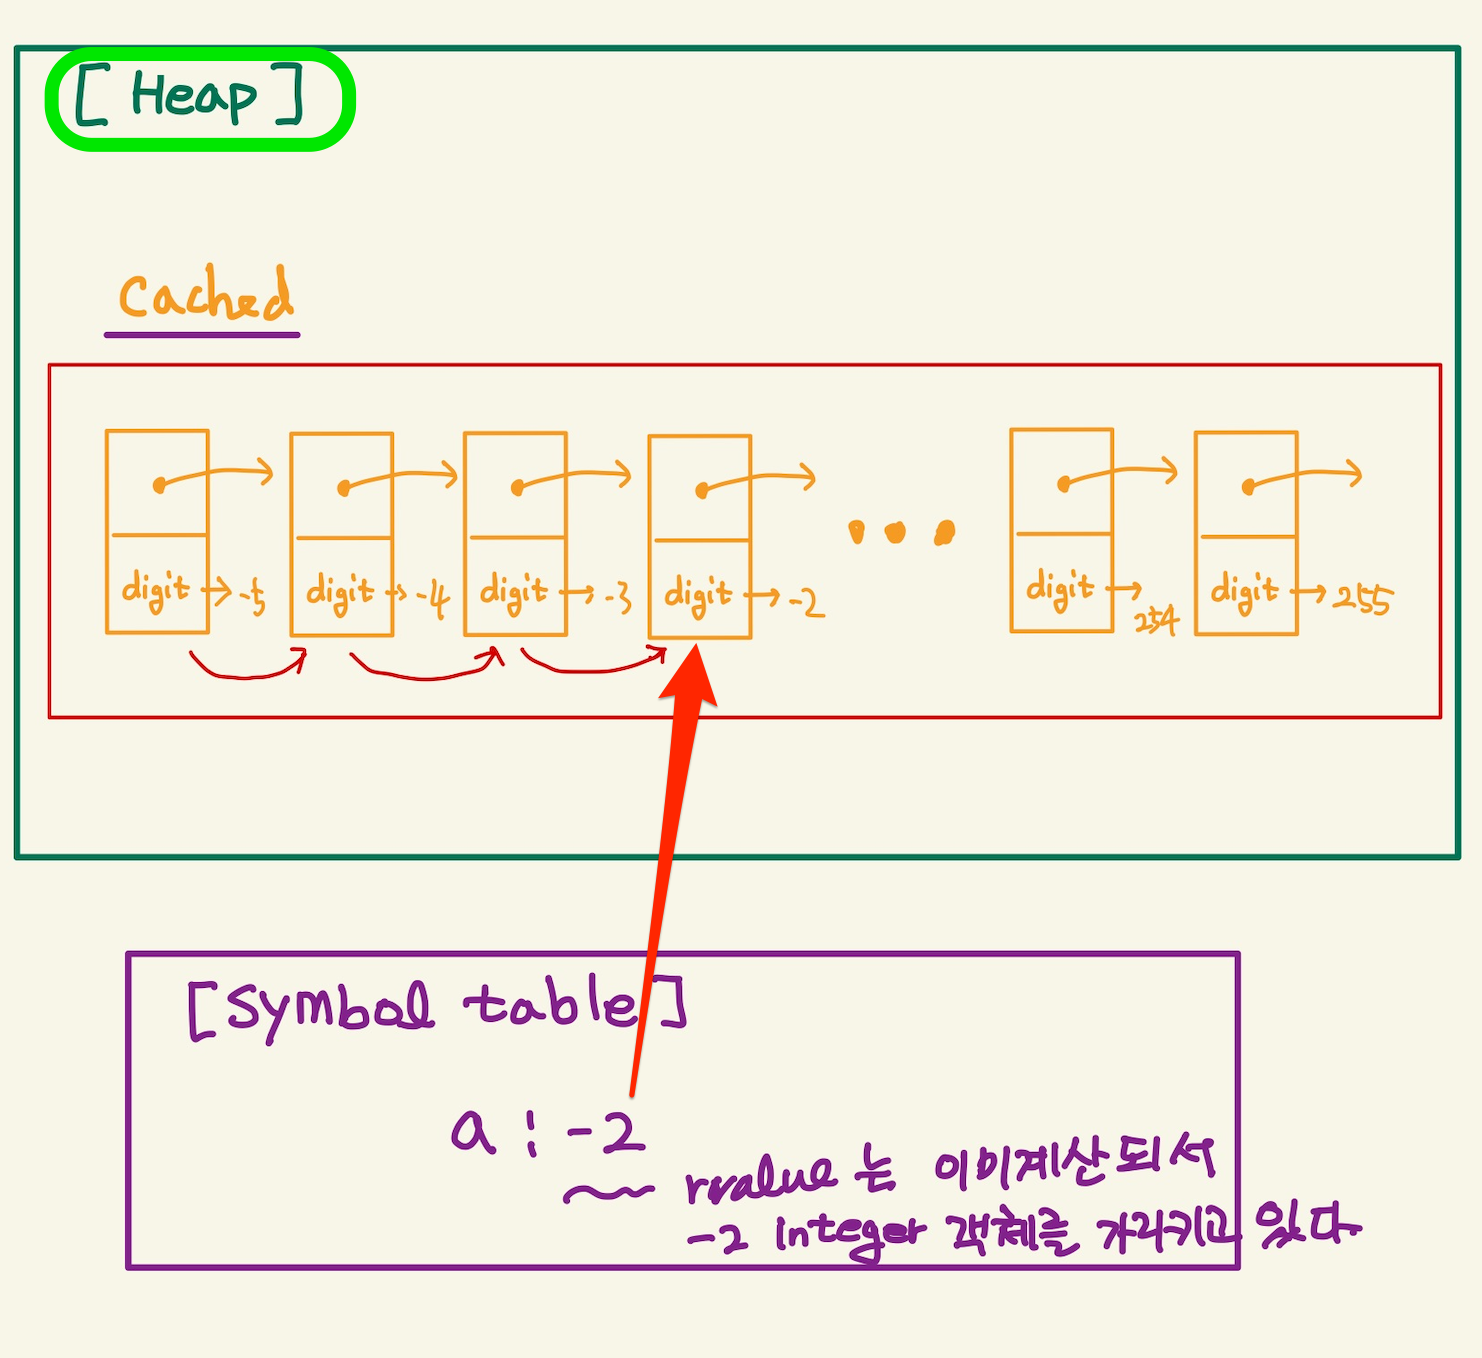 [ Heap ]
Cached
digit → -5
digit → -4
digit → -3
digit → -2
digit → 254
digit → 255
[Symbol table]
a : -2
rvalue 는 이미계산되서
-2 integer 객체를 가리키고 있다